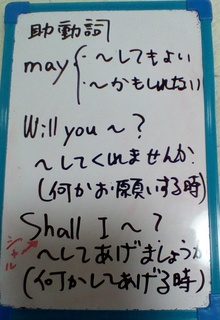 助動詞
may { ・〜してもよい
・〜かもしれない
Will you 〜?
〜してくれませんか
(何かお願いする時)
Shall I 〜?
シャル
〜してあげましょうか
(何かしてあげる時)